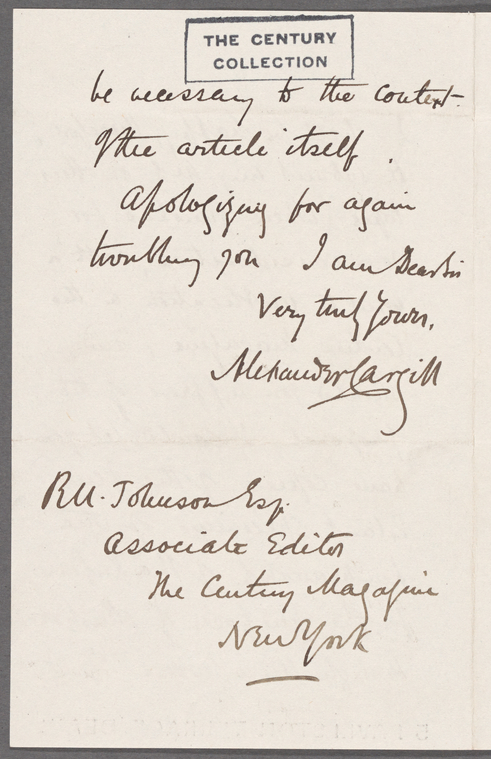 THE CENTURY
COLLECTION
be necessary to the context
of the article itself.
Apologizing for again
troubling you I am Dear Sir
Very truly Yours,
Alexander Cargill
R.U. Johnson Esq.
Associate Editor
The Century Magazine
New York